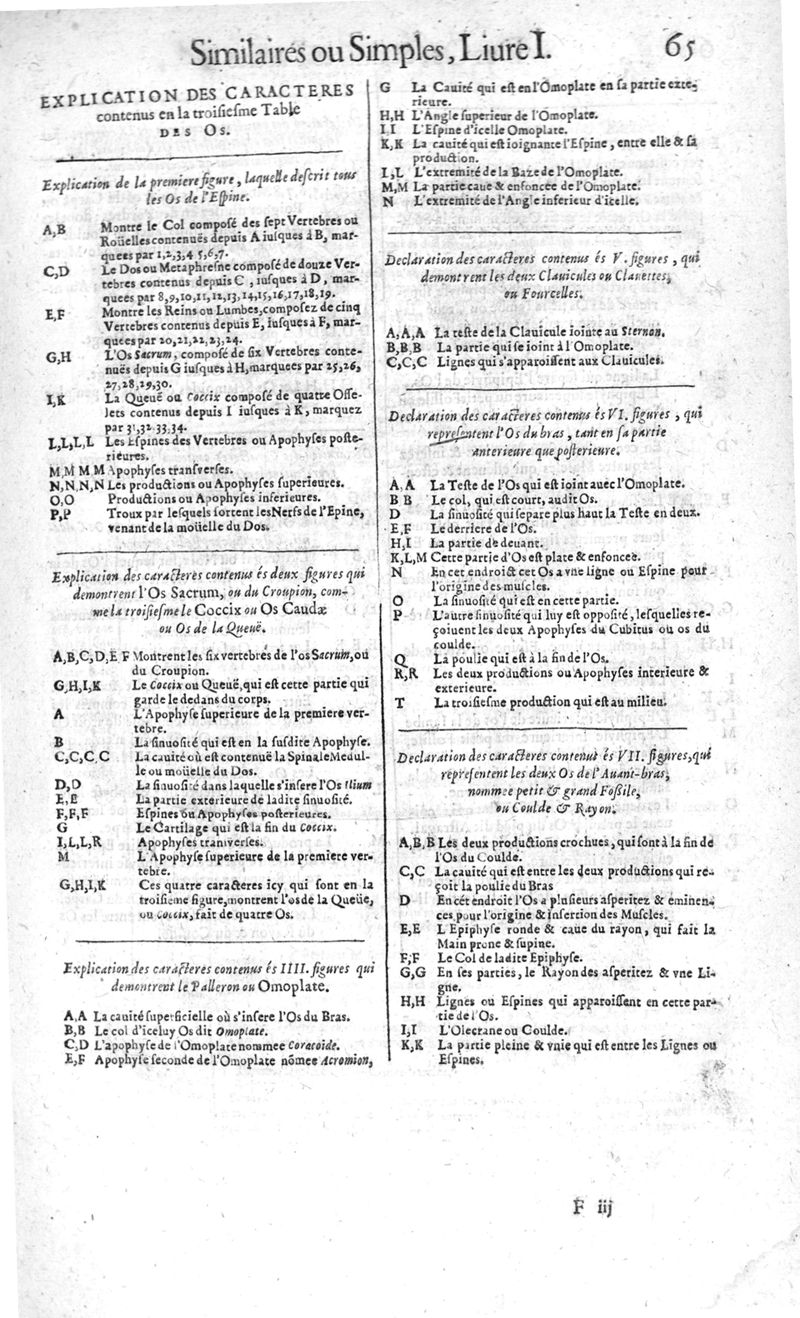 Similaires ou Simples, Liure I. 65
EXPLICATION DES CARACTERES
contenus en la troisiesme Table
DES Os.
Explication de la premiere figure, laquelle descrit tous
les Os de l'Espine.
A,B Montre le Col composé des sept Vertebres ou
Roüelles contenuës depuis A iusques à B, mar-
quées par 1,2,3,4 5,6,7.
C,D Le Dos ou Metaphresne composé de douze Ver-
tebres contenus depuis C, iusques à D, mar-
quées par 8,9,10,11,12,13,14,15,16,17,18,19.
E,F Montre les Reins ou Lumbes, composez de cinq
Vertebres contenus depuis E, iusques à F, mar-
quées par 20,21,22,23,24.
G,H L'Os Sacrum, composé de six Vertebres conte-
nuës depuis G iusques à H, marquées par 25,26,
27,28,29,30.
I,K La Queuë ou Coccix composé de quatre Osse-
lets contenus depuis I iusques à K, marquez
par 31,32,33,34.
L,L,L,L Les Espines des Vertebres ou Apophyses poste-
rieures.
M,M M,M Apophyses transverses.
N,N,N,N Les productions ou Apophyses superieures.
O,O Productions ou Apophyses inferieures.
P,P Troux par lesquels sortent les Nerfs de l'Epine,
venant de la moüelle du Dos.
Explication des caracteres contenus és deux figures qui
demontrent l'Os Sacrum, ou du Croupion, com-
me la troisiesme le Coccix ou Os Caudæ
ou Os de la Queuë.
A,B,C,D,E F Montrent les six vertebrés de l'os Sacrum, ou
du Croupion.
G,H,I,K Le Coccix ou Queuë, qui est cette partie qui
garde le dedans du corps.
A L'Apophyse superieure de la premiere ver-
tebre.
B La sinuosité qui est en la susdite Apophyse.
C,C,C,C La cauité où est contenuë la Spinale Medul-
le ou moüelle du Dos.
D,D La sinuosité dans laquelle s'insere l'Os Ilium
E,E La partie exterieure de ladite sinuosité.
F,F,F Espines ou Apophyses posterieures.
G Le Cartilage qui est la fin du Coccix.
I,L,L,R Apophyses transverses.
M L'Apophyse superieure de la premiere ver-
tebre.
G,H,I,K Ces quatre caracteres icy qui sont en la
troisiesme figure, montrent l'os de la Queüe,
ou Coccix, fait de quatre Os.
Explication des caracteres contenus és IIII. figures qui
demontrent le Palleron ou Omoplate.
A,A La cauité superficielle où s'insere l'Os du Bras.
B,B Le col d'iceluy Os dit Omoplate.
C,D L'apophyse de l'Omoplate nommée Coracoide.
E,F Apophyse seconde de l'Omoplate nõmée Acromion,
G La Cauité qui est en l'Omoplate en sa partie exte-
rieure.
H,H L'Angle superieur de l'Omoplate.
I,I L'Espine d'icelle Omoplate.
K,K La cauité qui est ioignante l'Espine, entre elle & sa
production.
I,L L'extremité de la Baze de l'Omoplate.
M,M La partie caue & enfoncée de l'Omoplate.
N L'extremité de l'Angle inferieur d'icelle.
Declaration des caracteres contenus és V. figures, qui
demontrent les deux Clauicules ou Clauettes,
ou Fourcelles.
A,A,A La teste de la Clauicule iointe au Sternon.
B,B,B La partie qui se ioint à l'Omoplate.
C,C,C Lignes qui s'apparoissent aux Clauicules.
Declaration des caracteres contenus és VI. figures, qui
representent l'Os du bras, tant en sa partie
anterieure que posterieure.
A,A La Teste de l'Os qui est ioint auec l'Omoplate.
B B Le col, qui est court, audit Os.
D La sinuosité qui separe plus haut la Teste en deux.
E,F Le derriere de l'Os.
H,I La partie de deuant.
K,L,M Cette partie d'Os est plate & enfoncée.
N En cet endroict cet Os a vne ligne ou Espine pour
l'origine des muscles.
O La sinuosité qui est en cette partie.
P L'autre sinuosité qui luy est opposité, lesquelles re-
çoiuent les deux Apophyses du Cubitus ou os du
coulde.
Q La poulie qui est à la fin de l'Os.
R,R Les deux productions ou Apophyses interieure &
exterieure.
T La troisiesme production qui est au milieu.
Declaration des caracteres contenus és VII. figures, qui
representent les deux Os de l'Auant-bras,
nommée petit & grand Fossile,
ou Coulde & Rayon.
A,B,B Les deux productions crochues, qui sont à la fin de
l'Os du Coulde.
C,C La cauité qui est entre les deux productions qui re-
çoit la poulie du Bras
D En cét endroit l'Os a plusieurs asperitez & eminen-
ces pour l'origine & insertion des Muscles.
E,E L'Epiphyse ronde & caue du rayon, qui fait la
Main prone & supine.
F,F Le Col de ladite Epiphyse.
G,G En ses parties, le Rayon des asperitez & vne Li-
gne.
H,H Lignes ou Espines qui apparoissent en cette par-
tie de l'Os.
I,I L'Olecrane ou Coulde.
K,K La partie pleine & vnie qui est entre les Lignes ou
Espines.
F iij